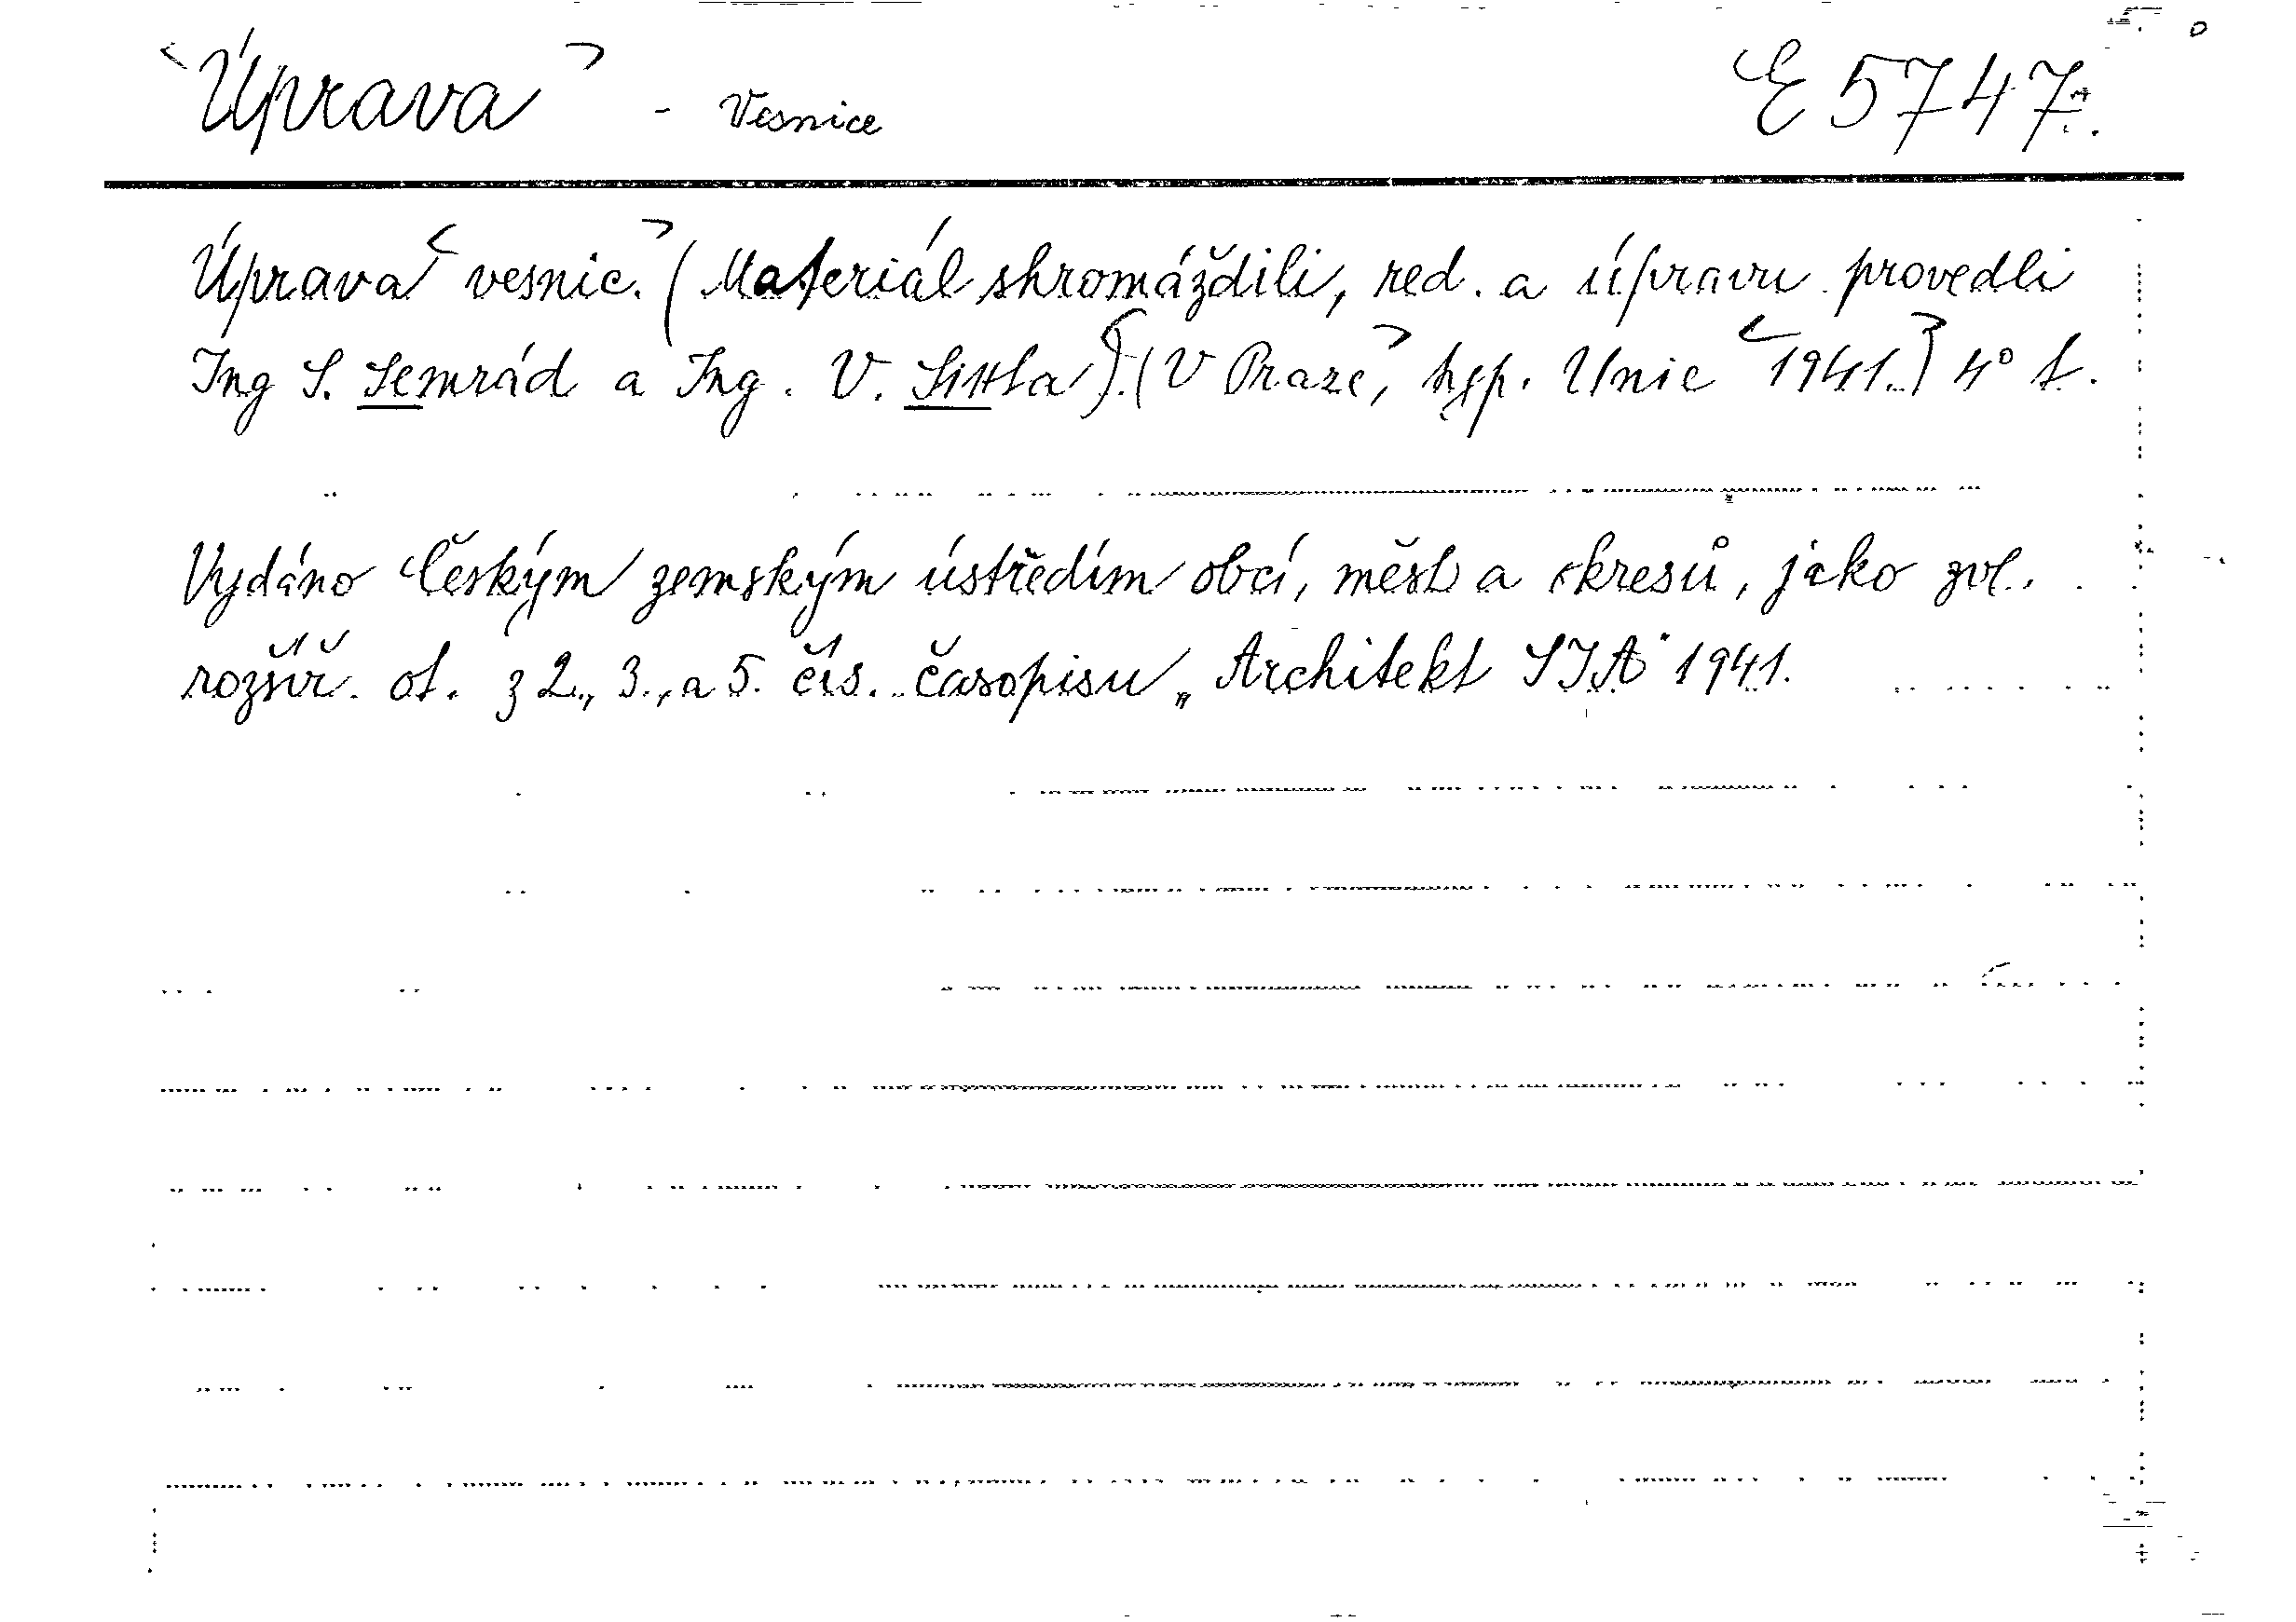 Úprava - Vesnice E 5747.
Úprava vesnic. (Materiál shromáždili, red. a úpravu provedli
Ing S. Semrád a Ing. V. Sittla). (V Praze, typ. Unie 1941.) 4° s.
Vydáno Českým zemským ústředím obcí, měst a okresů, jako zvl.
rozšíř. ot. z 2., 3., a 5. čís. časopisu „Architekt SIA" 1941.